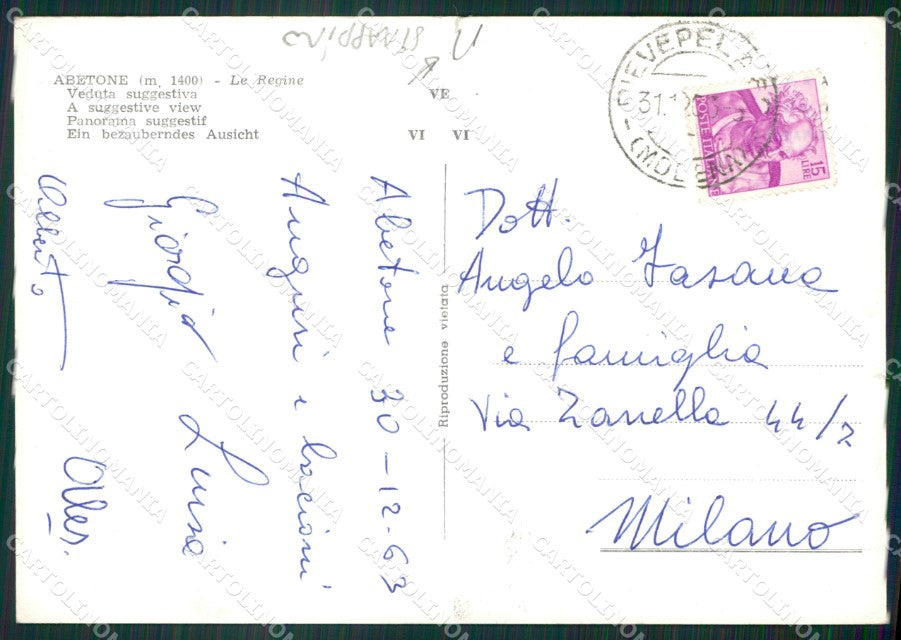 STRAPPINO
ABETONE (m. 1400) - Le Regine
Veduta suggestiva
A suggestive view
Panorama suggestif
Ein bezauberndes Ausicht
VE
VI VI
PIEVEPELAGO
31.12
(MODENA)
POSTE ITALIANE
15
LIRE
Abetone 30-12-63
Auguri e bacioni
Giorgio Luisa
Alberto
Ales.
Riproduzione vietata
Dott.
Angelo Fasana
e famiglia
Via Zanella 44/2
Milano
CARTOLINOMANIA